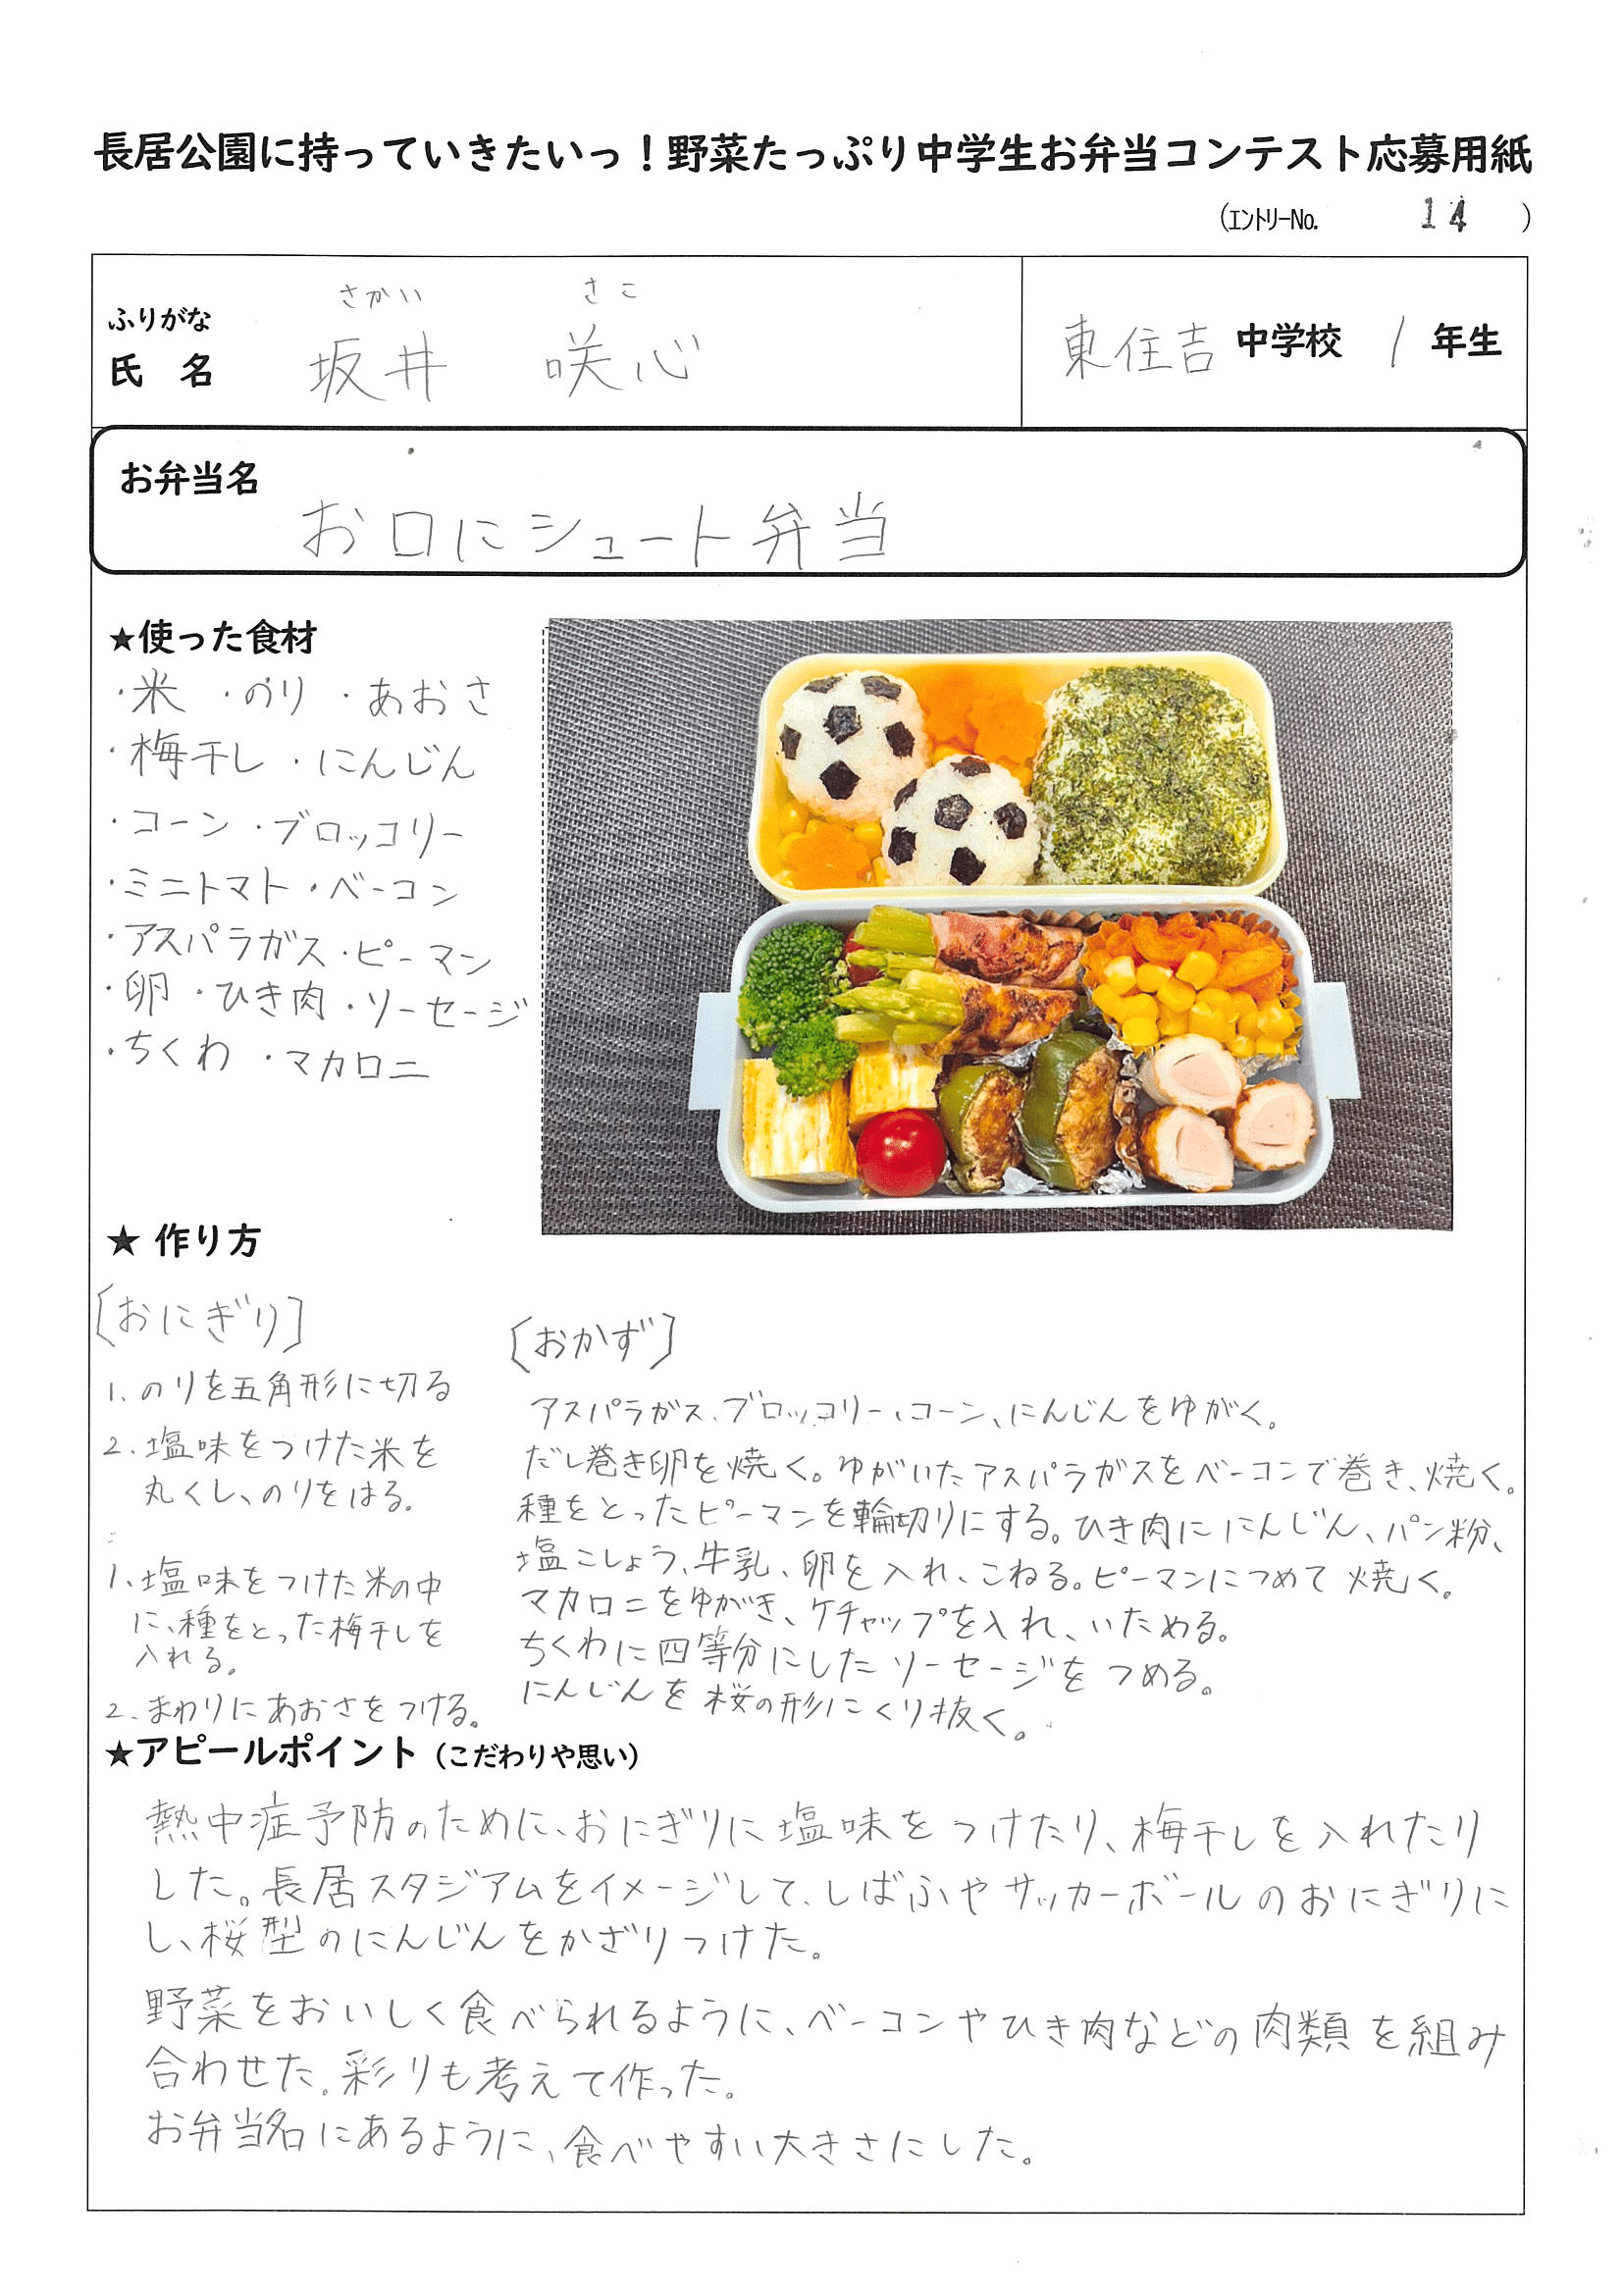 長居公園に持っていきたいっ！野菜たっぷり中学生お弁当コンテスト応募用紙
（エントリーNo. 14 ）
ふりがな さかい さこ
氏 名 坂井 咲心
東住吉 中学校 1 年生
お弁当名
お口にシュート弁当
★使った食材
・米 ・のり ・あおさ
・梅干し ・にんじん
・コーン ・ブロッコリー
・ミニトマト ・ベーコン
・アスパラガス ・ピーマン
・卵 ・ひき肉 ・ソーセージ
・ちくわ ・マカロニ
★ 作り方
〔おにぎり〕
1. のりを五角形に切る
2. 塩味をつけた米を
丸くし、のりをはる。
1、塩味をつけた米の中
に、種をとった梅干しを
入れる。
2. まわりにあおさをつける。
〔おかず〕
アスパラガス、ブロッコリー、コーン、にんじんをゆがく。
だし巻き卵を焼く。ゆがいたアスパラガスをベーコンで巻き、焼く。
種をとったピーマンを輪切りにする。ひき肉ににんじん、パン粉、
塩こしょう、牛乳、卵を入れ、こねる。ピーマンにつめて焼く。
マカロニをゆがき、ケチャップを入れ、いためる。
ちくわに四等分にしたソーセージをつめる。
にんじんを桜の形にくり抜く。
★アピールポイント（こだわりや思い）
熱中症予防のために、おにぎりに塩味をつけたり、梅干しを入れたり
した。長居スタジアムをイメージして、しばふやサッカーボールのおにぎりに
し、桜型のにんじんをかざりつけた。
野菜をおいしく食べられるように、ベーコンやひき肉などの肉類を組み
合わせた。彩りも考えて作った。
お弁当名にあるように、食べやすい大きさにした。